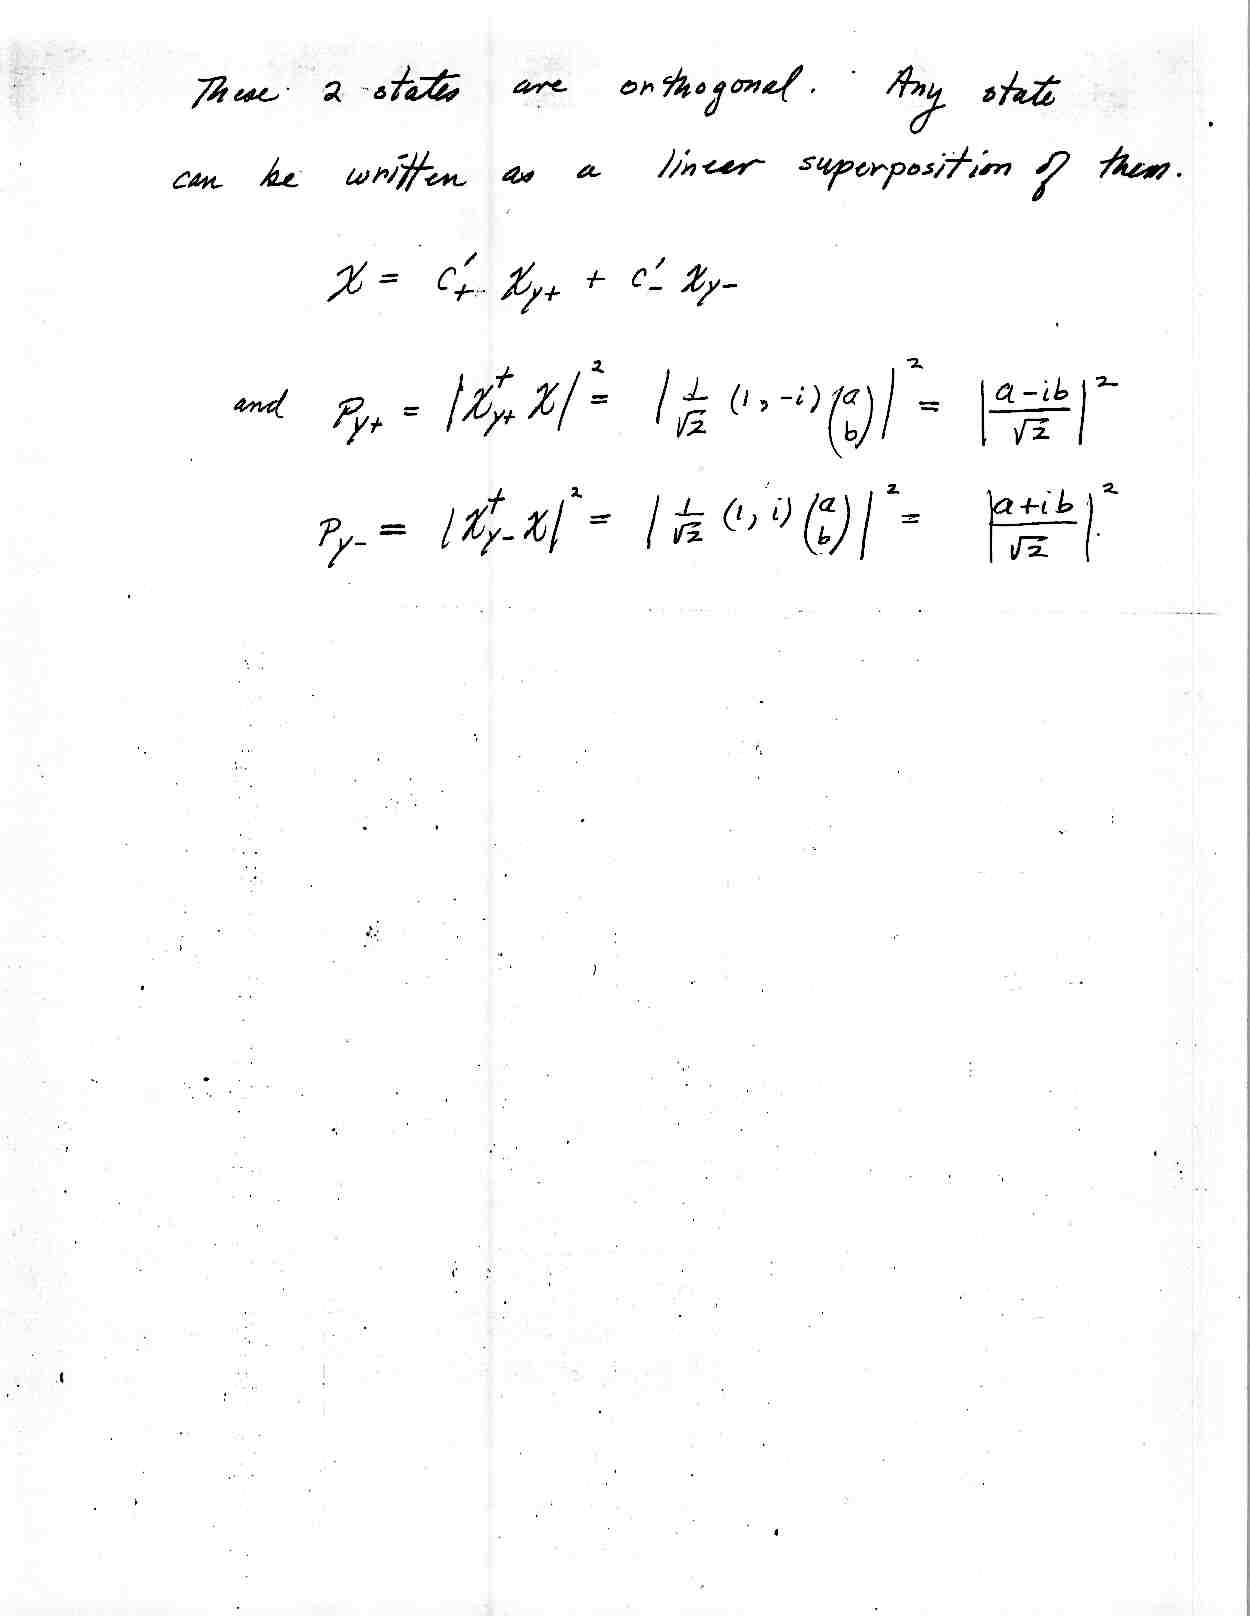 These 2 states are orthogonal. Any state
can be written as a linear superposition of them.
χ = c'₊ χ_{y+} + c'₋ χ_{y-}
and P_{y+} = |χ†_{y+} χ|² = |1/√2 (1, -i) (a b)|² = |a-ib/√2|²
P_{y-} = |χ†_{y-} χ|² = |1/√2 (1, i) (a b)|² = |a+ib/√2|²